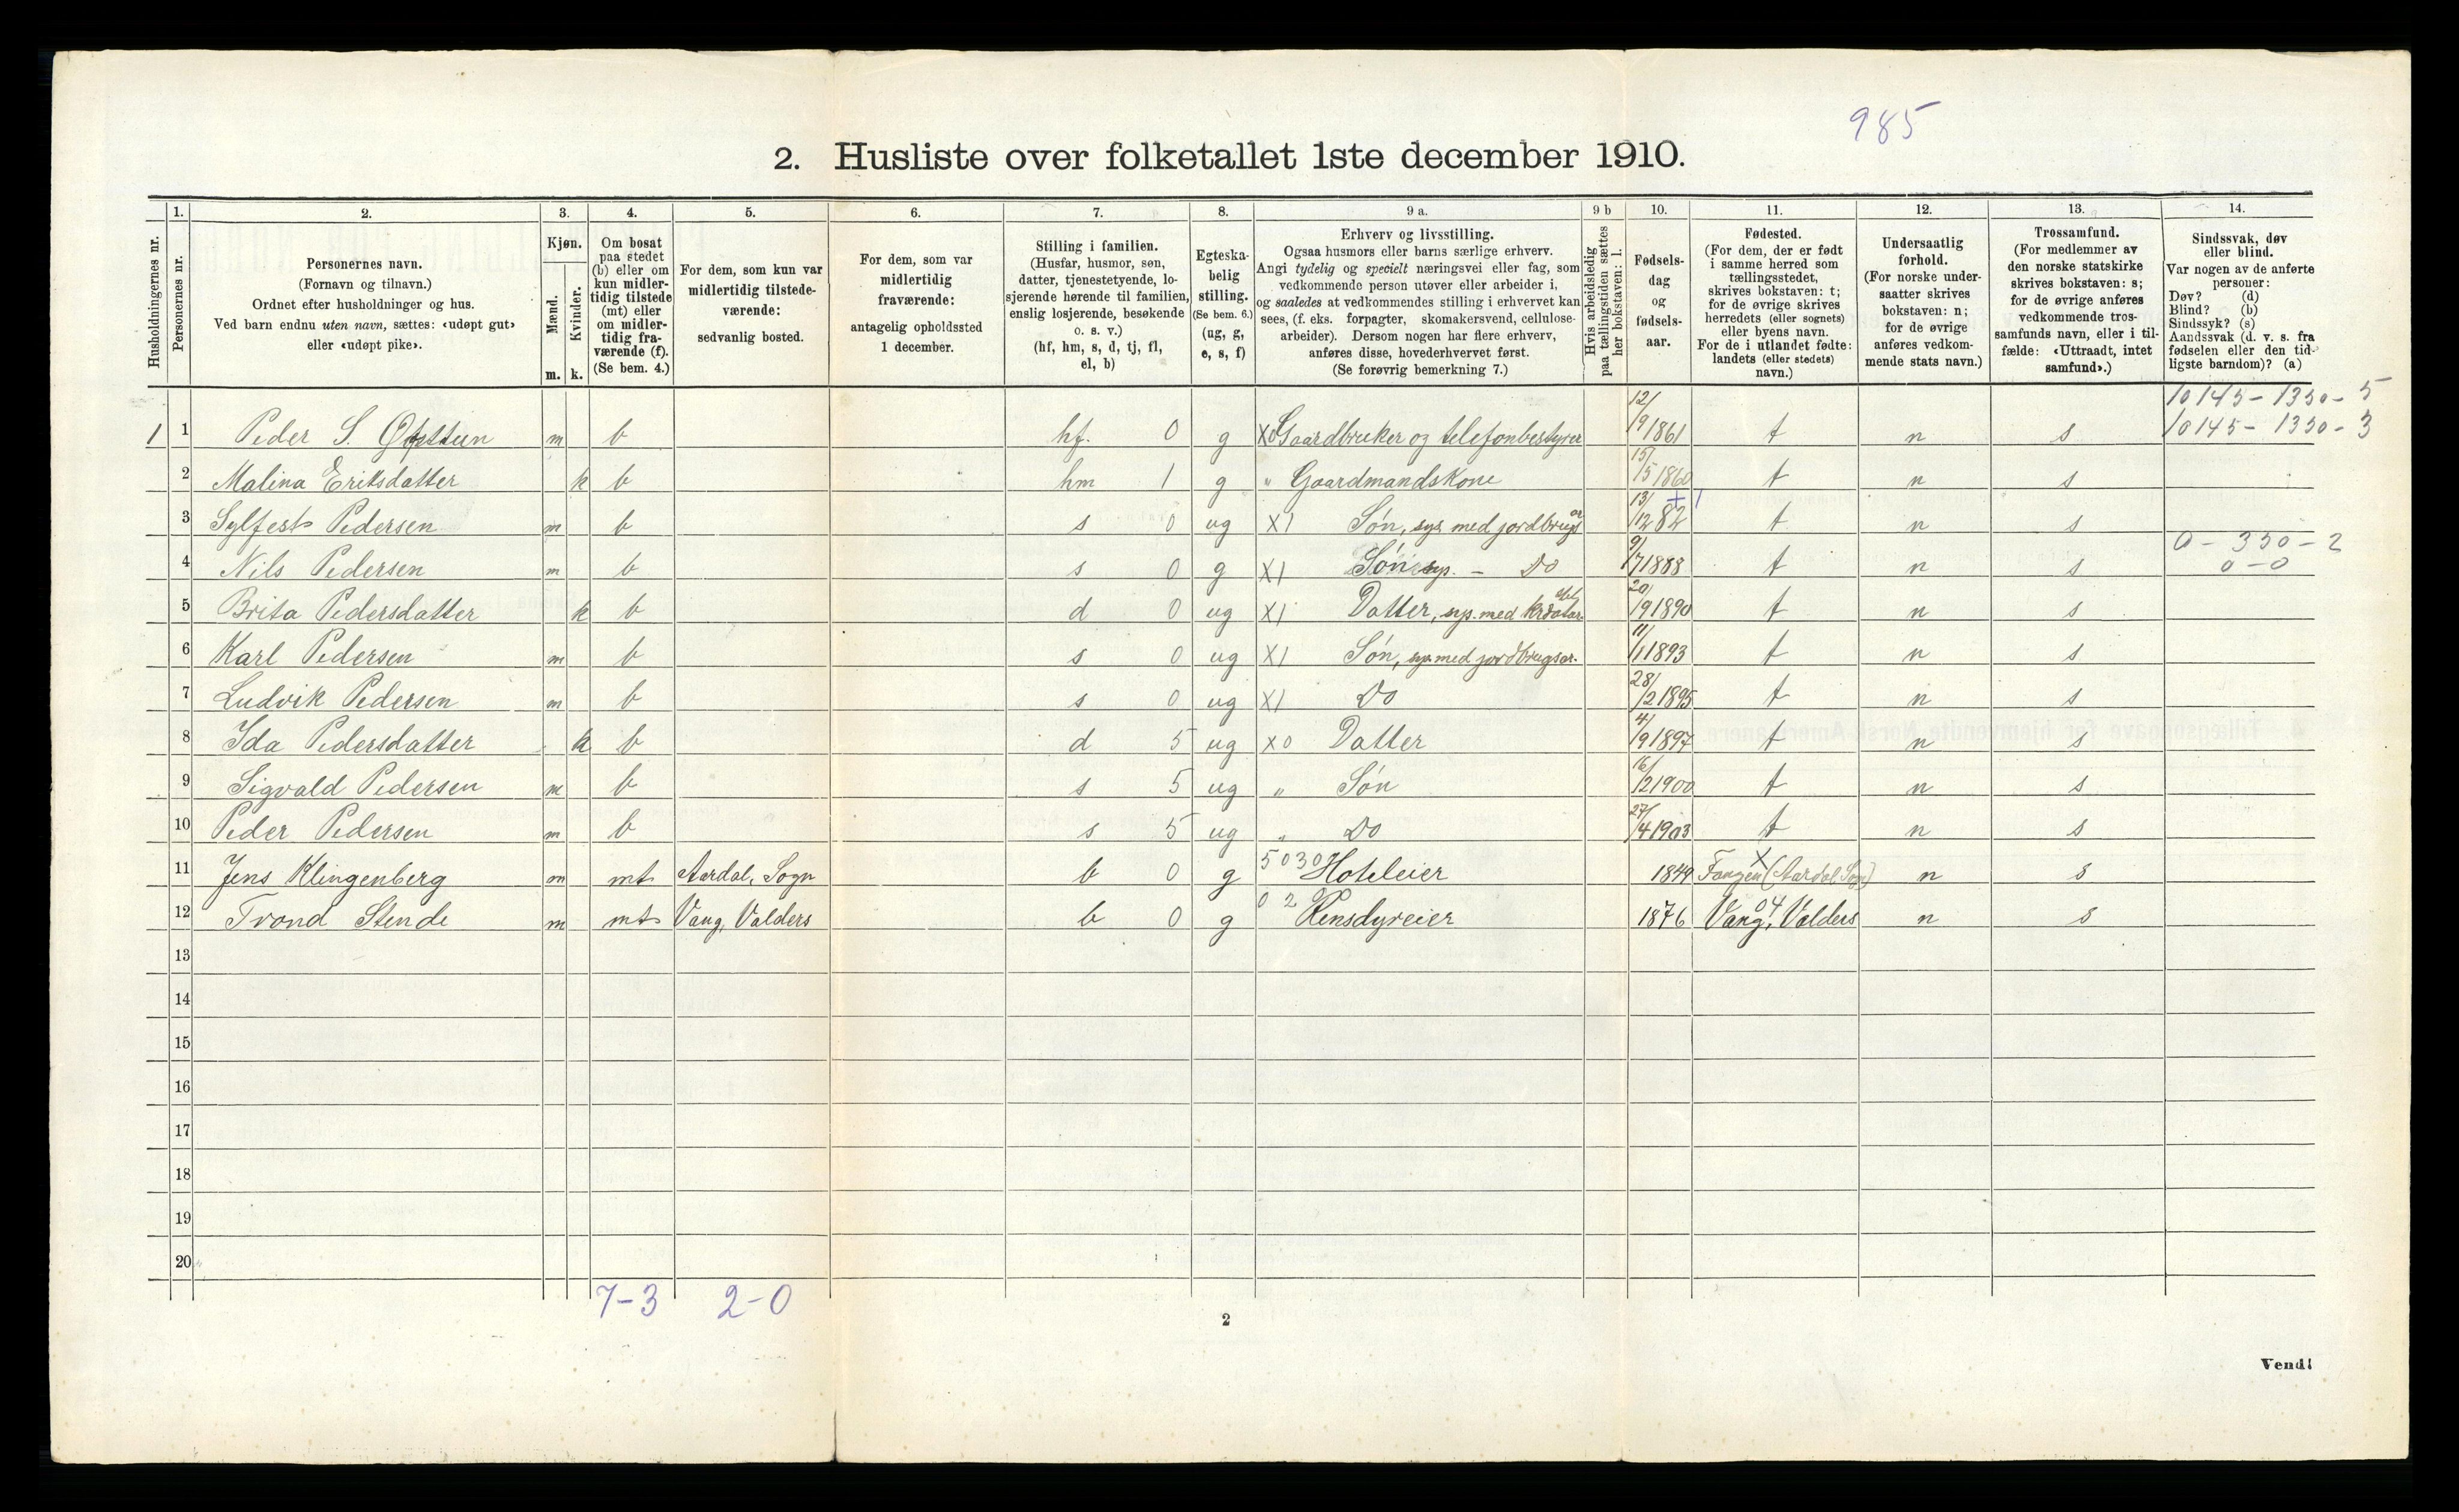 985
2. Husliste over folketallet 1ste december 1910.
Husholdningernes nr.
1.
Personernes nr.
2.
Personernes navn.
(Fornavn og tilnavn.)
Ordnet efter husholdninger og hus.
Ved barn endnu uten navn, sættes: «udøpt gut»
eller «udøpt pike».
3.
Kjøn.
Mænd.
Kvinder.
m. k.
4.
Om bosat
paa stedet
(b) eller om
kun midler-
tidig tilstede
(mt) eller
om midler-
tidig fra-
værende (f).
(Se bem. 4.)
5.
For dem, som kun var
midlertidig tilstede-
værende:
sedvanlig bosted.
6.
For dem, som var
midlertidig
fraværende:
antagelig opholdssted
1 december.
7.
Stilling i familien.
(Husfar, husmor, søn,
datter, tjenestetyende, lo-
sjerende hørende til familien,
enslig losjerende, besøkende
o. s. v.)
(hf, hm, s, d, tj, fl,
el, b)
8.
Egteska-
belig
stilling.
(Se bem. 6.)
(ug, g,
e, s, f)
9 a.
Erhverv og livsstilling.
Ogsaa husmors eller barns særlige erhverv.
Angi tydelig og specielt næringsvei eller fag, som
vedkommende person utøver eller arbeider i,
og saaledes at vedkommendes stilling i erhvervet kan
sees, (f. eks. forpagter, skomakersvend, cellulose-
arbeider). Dersom nogen har flere erhverv,
anføres disse, hovederhvervet først.
(Se forøvrig bemerkning 7.)
9 b
Hvis arbeidsledig
paa tællingstiden sættes
her bokstaven: l.
10.
Fødsels-
dag
og
fødsels-
aar.
11.
Fødested.
(For dem, der er født
i samme herred som
tællingsstedet,
skrives bokstaven: t;
for de øvrige skrives
herredets (eller sognets)
eller byens navn.
For de i utlandet fødte:
landets (eller stedets)
navn.)
12.
Undersaatlig
forhold.
(For norske under-
saatter skrives
bokstaven: n;
for de øvrige
anføres vedkom-
mende stats navn.)
13.
Trossamfund.
(For medlemmer av
den norske statskirke
skrives bokstaven: s;
for de øvrige anføres
vedkommende tros-
samfunds navn, eller i til-
fælde: «Uttraadt, intet
samfund».)
14.
Sindssvak, døv
eller blind.
Var nogen av de anførte
personer:
Døv? (d)
Blind? (b)
Sindssyk? (s)
Aandssvak (d. v. s. fra
fødselen eller den tid-
ligste barndom)? (a)
10145 - 1350 - 5
1 1 Peder S. m b hf. 0 g X0 Gaardbruker og telefonbestyrer 12/9 1861 t n s 10145 - 1350 - 3
2 Malina Eriksdatter k b hm 1 g " Gaardmandskone 15/5 1860 t n s
3 Sylfest Pedersen m b s 0 ug X1 Søn, sys. med jordbrugsar 13/12 82 t n s
0 - 350 - 2
4 Nils Pedersen m b s 0 g X1 Søn sys. - Do 9/7 1888 t n s 0 - 0
5 Brita Pedersdatter k b d 0 ug X1 Datter, sys. med 20/9 1890 t n s
6 Karl Pedersen m b s 0 ug X1 Søn, sys med jordbrugsar. 11/1 1893 t n s
7 Ludvik Pedersen m b s 0 ug X1 Do 28/2 1895 t n s
8 Ida Pedersdatter k b d 5 ug X0 Datter 4/9 1897 t n s
9 Sigvald Pedersen m b s 5 ug " Søn 16/2 1900 t n s
10 Peder Pedersen m b s 5 ug " Do 27/4 1903 t n s
11 Jens Klingenberg m mt Aardal, Sogn b 0 g 5030 Hoteleier 1849 (Aardal Sogn) n s
12 Trond Stende m mt Vang, Valders b 0 g 02 Rensdyreier 1876 Vang, Valders 04 n s
13
14
15
16
17
18
19
20
7-3 2-0
2
Vend!